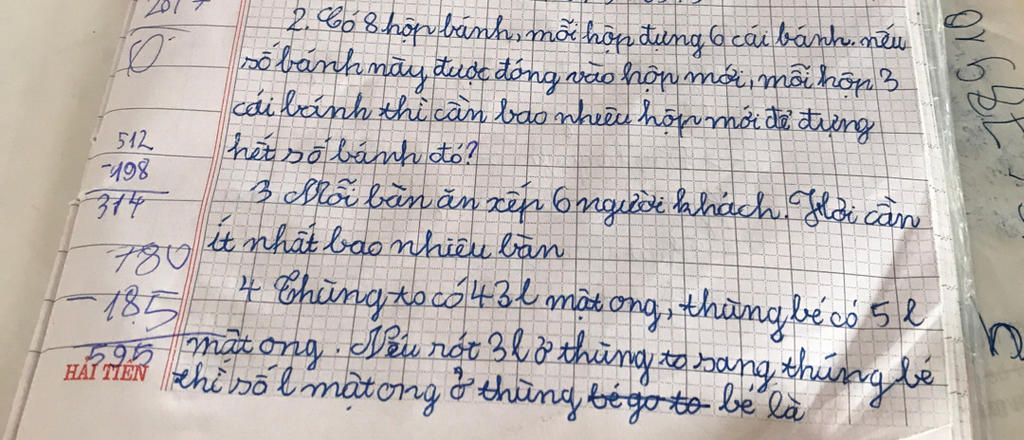 2017
2. Có 8 hộp bánh, mỗi hộp đựng 6 cái bánh. nếu
số bánh này được đóng vào hộp mới, mỗi hộp 3
cái bánh thì cần bao nhiêu hộp mới để đựng
hết số bánh đó?
3 Mỗi bàn ăn xếp 6 người khách. Hỏi cần
ít nhất bao nhiêu bàn
4 Thùng to có 43l mật ong, thùng bé có 5 l
mật ong. Nếu rót 3l ở thùng to sang thùng bé
thì số l mật ong ở thùng bé go to bé là
0
512
-198
314
780
-185
595
HẢI TIẾN